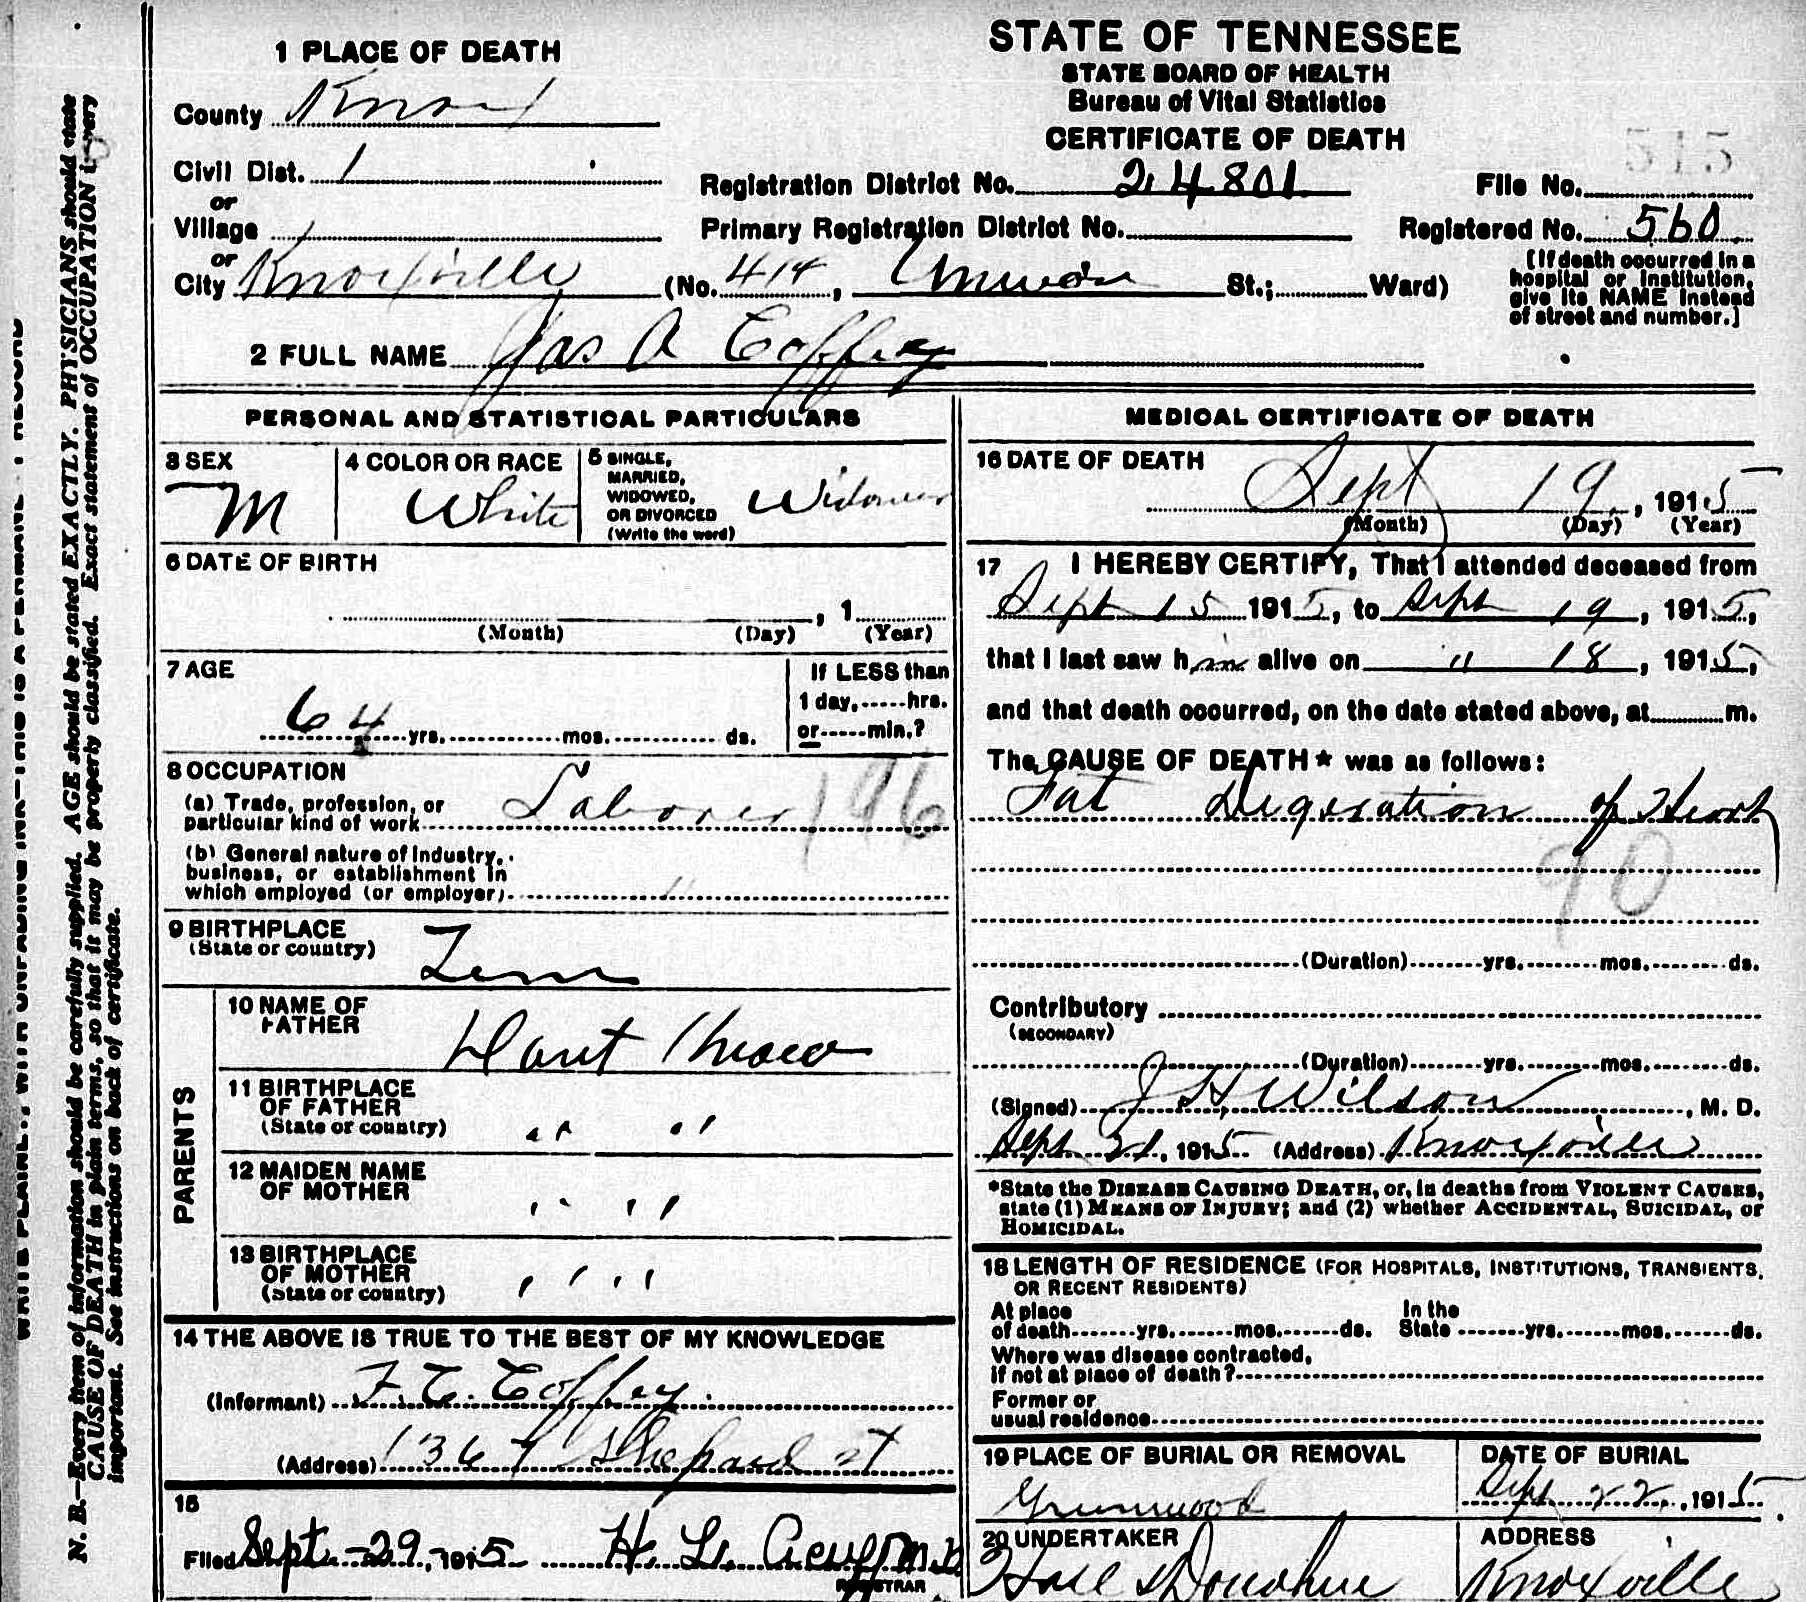 STATE OF TENNESSEE
STATE BOARD OF HEALTH
Bureau of Vital Statistics
CERTIFICATE OF DEATH
1 PLACE OF DEATH
County Knox
Civil Dist. 1
or
Village
or
City Knoxville (No. 414, Union St.; Ward)
Registration District No. 24801
Primary Registration District No.
File No. 515
Registered No. 560
[If death occurred in a
hospital or institution,
give its NAME instead
of street and number.]
2 FULL NAME Jas A Coffey
PERSONAL AND STATISTICAL PARTICULARS
3 SEX
M
4 COLOR OR RACE
White
5 SINGLE,
MARRIED,
WIDOWED,
OR DIVORCED
(Write the word)
Widower
6 DATE OF BIRTH
, 1
(Month) (Day) (Year)
7 AGE
64 yrs. mos. ds.
If LESS than
1 day, hrs.
or min.?
8 OCCUPATION
(a) Trade, profession, or
particular kind of work Laborer
196
(b) General nature of industry,
business, or establishment in
which employed (or employer) "
9 BIRTHPLACE
(State or country)
Tenn
PARENTS
10 NAME OF
FATHER
Dont Know
11 BIRTHPLACE
OF FATHER
(State or country) " "
12 MAIDEN NAME
OF MOTHER
" "
13 BIRTHPLACE
OF MOTHER
(State or country) " "
14 THE ABOVE IS TRUE TO THE BEST OF MY KNOWLEDGE
(Informant) F. C. Coffey.
(Address) 1367 Shepard st
15
Filed Sept - 29, 1915 H. L. M.D.
REGISTRAR
MEDICAL CERTIFICATE OF DEATH
16 DATE OF DEATH
Sept 19, 1915
(Month) (Day) (Year)
17 I HEREBY CERTIFY, That I attended deceased from
Sept 15 1915, to Sept 19, 1915,
that I last saw him alive on " 18, 1915,
and that death occurred, on the date stated above, at m.
The CAUSE OF DEATH* was as follows:
Fat Digeration of Heart
90
(Duration) yrs. mos. ds.
Contributory
(SECONDARY)
(Duration) yrs. mos. ds.
(Signed) J H Wilson, M. D.
Sept 21, 1915 (Address) Knoxville
*State the DISEASE CAUSING DEATH, or, in deaths from VIOLENT CAUSES,
state (1) MEANS OF INJURY; and (2) whether ACCIDENTAL, SUICIDAL, or
HOMICIDAL.
18 LENGTH OF RESIDENCE (FOR HOSPITALS, INSTITUTIONS, TRANSIENTS,
OR RECENT RESIDENTS)
At place
of death yrs. mos. ds.
In the
State yrs. mos. ds.
Where was disease contracted,
if not at place of death?
Former or
usual residence
19 PLACE OF BURIAL OR REMOVAL
Greenwood
DATE OF BURIAL
Sept 22, 1915
20 UNDERTAKER
Hall & Donahue
ADDRESS
Knoxville
N. B.—Every item of information should be carefully supplied. AGE should be stated EXACTLY. PHYSICIANS should state
CAUSE OF DEATH in plain terms, so that it may be properly classified. Exact statement of OCCUPATION is very
important. See instructions on back of certificate.